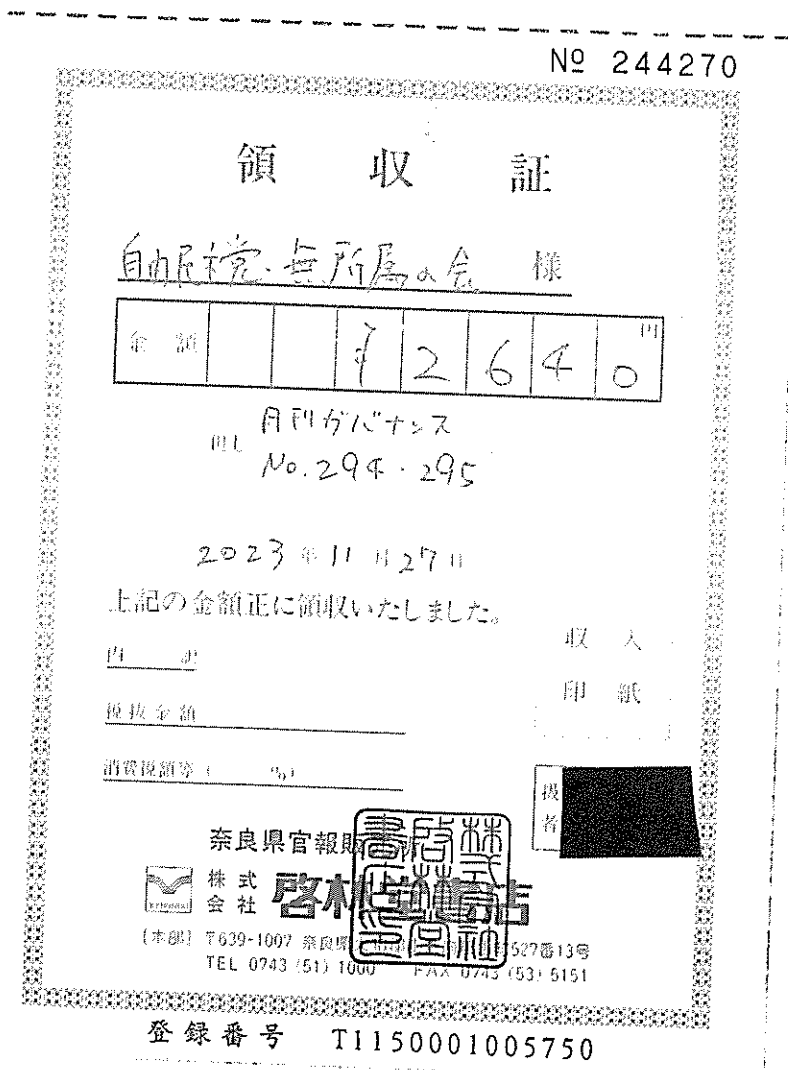 № 244270
領 収 証
自由民主党・無所属の会 様
金額 ¥2640 円
但し 月刊ガバナンス
No.294・295
2023年11月27日
上記の金額正に領収いたしました。
収入
印紙
内訳
税抜金額
消費税額等( %)
扱者
奈良県官報販売所
株式会社 啓林堂書店
〔本部〕〒639-1007 奈良県 527番13号
TEL 0743 (51) 1000 FAX 0743 (53) 5151
登録番号 T1150001005750